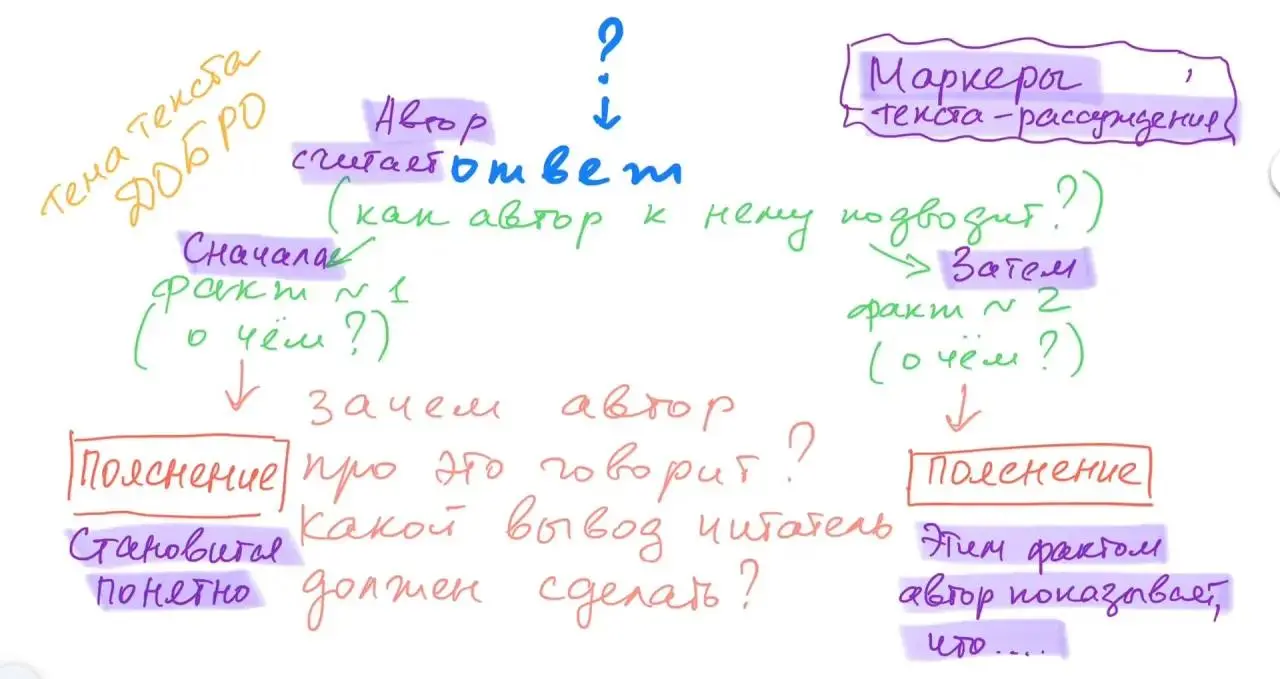 ?
тема текста
ДОБРО
Автор
считает ответ
(как автор к нему подводит?)
Маркеры
текста-рассуждения
Сначала
факт №1
(о чём?)
Затем
факт №2
(о чём?)
Пояснение
Становится
понятно
Зачем автор
про это говорит?
Какой вывод читатель
должен сделать?
Пояснение
Этим фактом
автор показывает,
что....